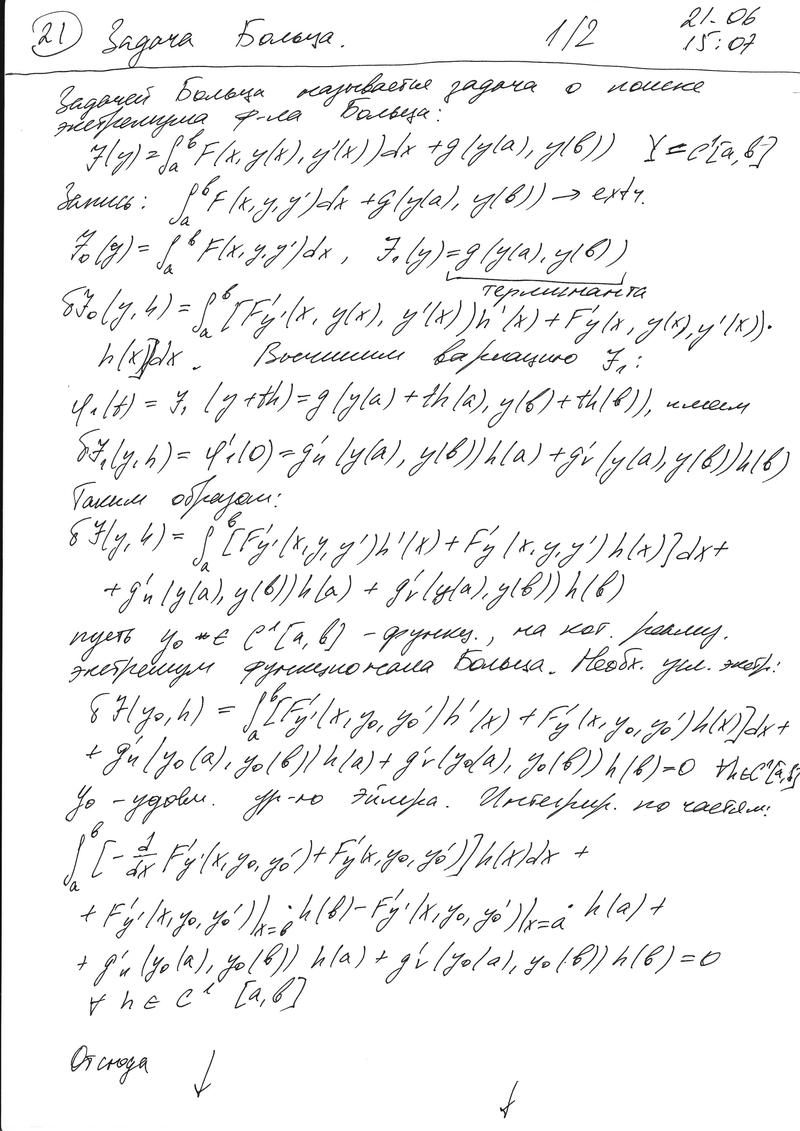 21 Задача Больца. 1/2 21-06
15:07
Задачей Больца называется задача о поиске
экстремума ф-ла Больца:
J(y) = ∫ₐᵇ F(x, y(x), y'(x))dx + g(y(a), y(b)) Y = C¹[a,b]
Запись: ∫ₐᵇ F(x, y, y')dx + g(y(a), y(b)) → extr.
J₀(y) = ∫ₐᵇ F(x, y, y')dx, J₁(y) = g(y(a), y(b))
терминанта
δJ₀(y, h) = ∫ₐᵇ [F'y'(x, y(x), y'(x))h'(x) + F'y(x, y(x), y'(x))·
h(x)]dx. Вычислим вариацию J₁:
φ₁(t) = J₁(y+th) = g(y(a) + th(a), y(b) + th(b)), имеем
δJ₁(y, h) = φ'₁(0) = g'u(y(a), y(b))h(a) + g'v(y(a), y(b))h(b)
Таким образом:
δJ(y, h) = ∫ₐᵇ [F'y'(x, y, y')h'(x) + F'y(x, y, y')h(x)]dx +
+ g'u(y(a), y(b))h(a) + g'v(y(a), y(b))h(b)
пусть y₀ ∈ C¹[a, b] - функц., на кот. реализ.
экстремум функционала Больца. Необх. усл. экстр:
δJ(y₀, h) = ∫ₐᵇ [F'y'(x, y₀, y₀')h'(x) + F'y(x, y₀, y₀')h(x)]dx +
+ g'u(y₀(a), y₀(b))h(a) + g'v(y₀(a), y₀(b))h(b) = 0 ∀h∈C¹[a,b]
y₀ - удовл. ур-ю Эйлера. Интегрир. по частям:
∫ₐᵇ [- d/dx F'y'(x, y₀, y₀') + F'y(x, y₀, y₀')]h(x)dx +
+ F'y'(x, y₀, y₀')|x=b · h(b) - F'y'(x, y₀, y₀')|x=a · h(a) +
+ g'u(y₀(a), y₀(b))h(a) + g'v(y₀(a), y₀(b))h(b) = 0
∀ h ∈ C¹ [a, b]
Отсюда ↓ ↓